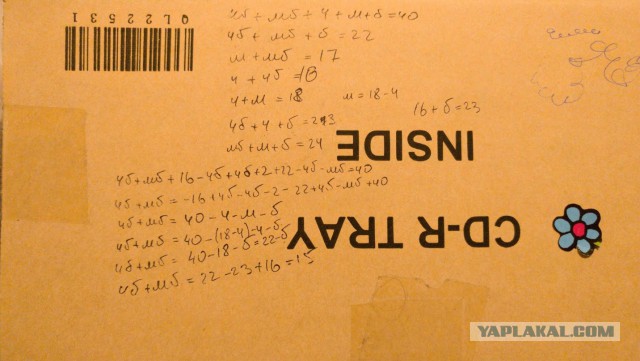 QL22531
чб + мб + ч + м + б = 40
чб + мб + б = 22
м + мб = 17
ч + чб = 16
ч + м = 18 м = 18 - ч
16 + б = 23
чб + ч + б = 23
мб + м + б = 24
INSIDE
чб + мб + 16 - чб + чб + 2 + 22 - чб - мб = 40
чб + мб = -16 + чб - чб - 2 - 22 + чб - мб + 40
чб + мб = 40 - ч - м - б
чб + мб = 40 - (18 - ч) - ч - б
чб + мб = 40 - 18 - б = 22 - б
чб + мб = 22 - 23 + 16 = 15
CD-R TRAY
YAPLAKAL.COM